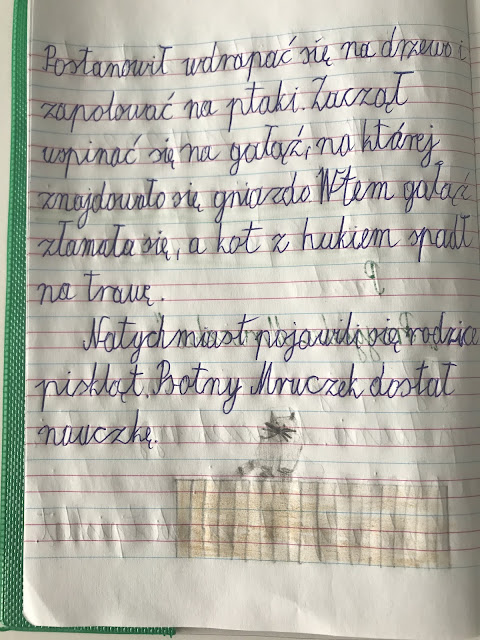 Postanowił wdrapać się na drzewo i
zapolować na ptaki. Zaczął
wspinać się na gałąź, na której
znajdowało się gniazdo. Wtem gałąź
złamała się, a kot z hukiem spadł
na trawę.
Natychmiast pojawili się rodzice
piskląt. Psotny Mruczek dostał
nauczkę.